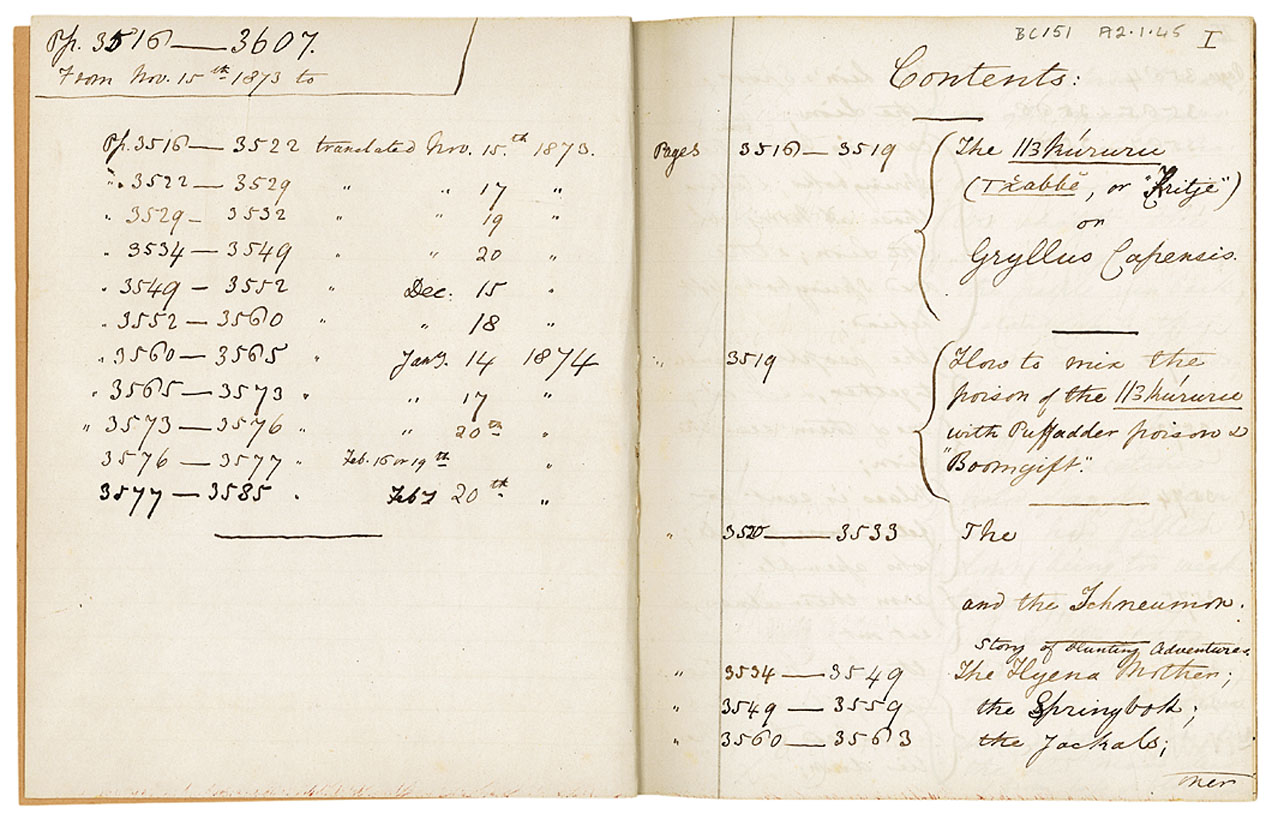 Pp. 3516 — 3607.
From Nov. 15th 1873 to
Pp. 3516 — 3522 translated Nov. 15.th 1873.
" 3522 — 3529 " " 17 "
" 3529 — 3532 " " 19 "
" 3534 — 3549 " " 20 "
" 3549 — 3552 " Dec. 15 "
" 3552 — 3560 " " 18 "
" 3560 — 3565 " Jany. 14 1874
" 3565 — 3573 " " 17 "
" 3573 — 3576 " " 20th "
3576 — 3577 " Feb. 16 or 19th "
3577 — 3585 " Feby 20th "
BC151 A2.1.45 I
Contents:
Pages 3516 — 3519 The
( , or "Kritje")
or
Gryllus Capensis.
" 3519 How to mix the
poison of the
with Puffadder poison &
"Boomgift".
" 3520 — 3533 The
and the Ichneumon.
Story of Hunting Adventures.
" 3534 — 3549 The Hyena Mother;
" 3549 — 3559 the Springbok;
" 3560 — 3563 the Jackals;